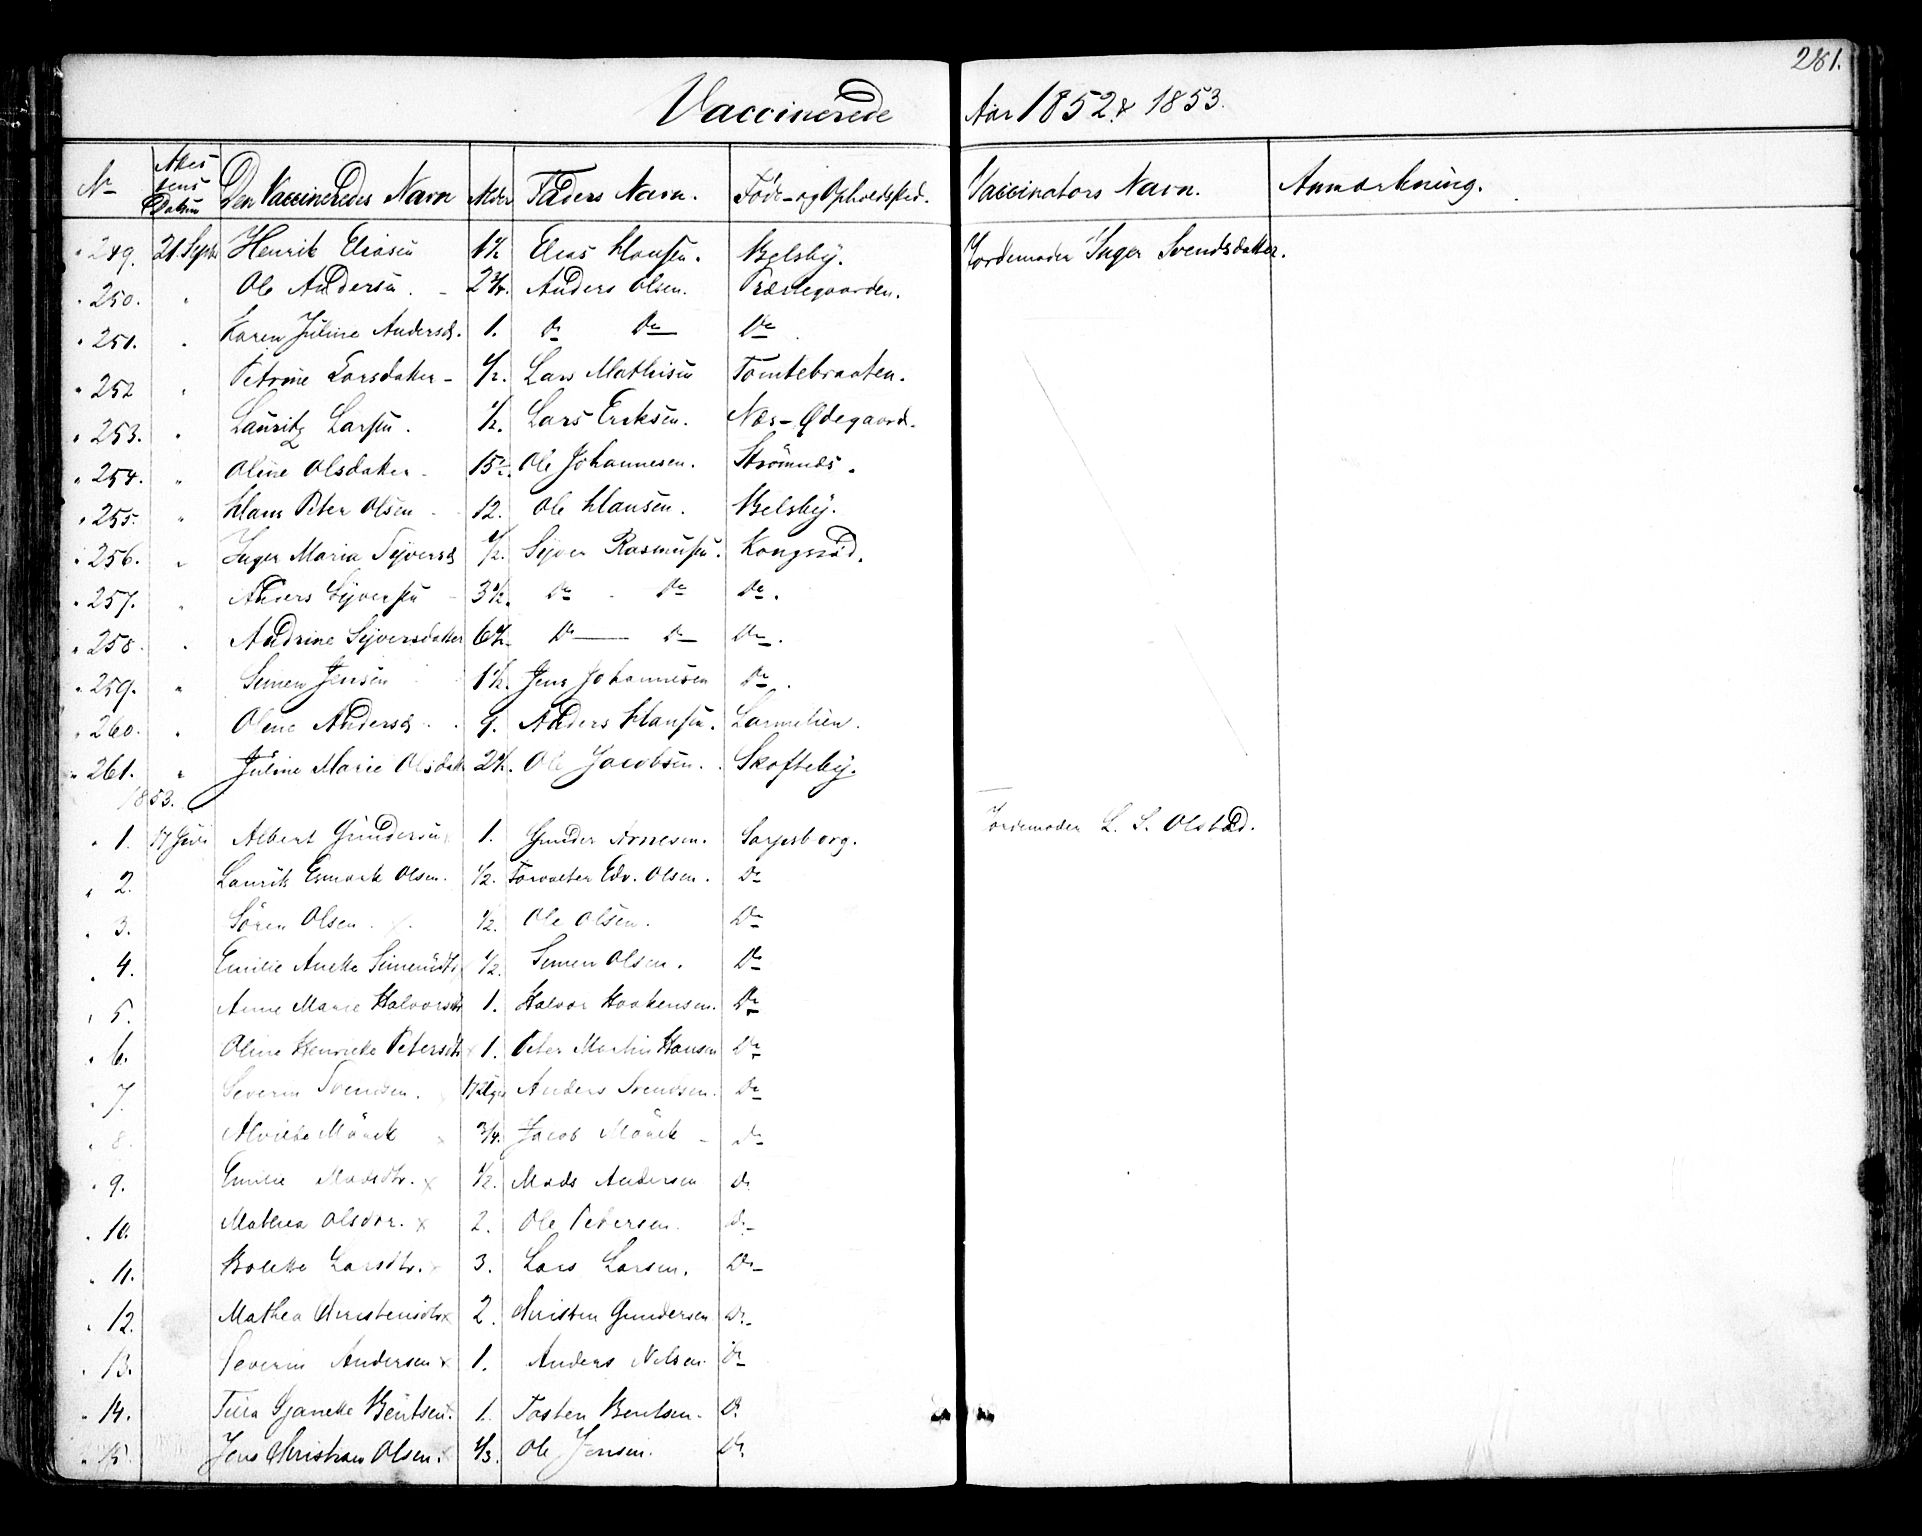 281.
Vaccinerede Aar 1852 & 1853.
No Attestens Datum Den Vaccineredes Navn Alder Faders Navn. Føde- og Opholdssted. Vaccinators Navn. Anmærkning.
" 249. 21 Septbr Henrik Eliasen 1½ Elias Hansen. Bjelsby. Jordemoder Inger Svendsdatter.
" 250. " Ole Andersen. 2¾. Anders Olsen. Præstegaarden.
" 251. " Karen Juline Andersd. 1. Do Do Do
" 252 " Petrine Larsdatter ½. Lars Mathisen Tomtebraaten.
" 253. " Lauritz Larsen. ½. Lars Eriksen. Næs-Ødegaard.
" 254. " Oline Olsdatter 15½. Ole Johannesen. Strømnes.
" 255. " Hans Peter Olsen 12. Ole Hansen. Bjelsby.
" 256. " Inger Maria Syversd ½. Syver Rasmusen. Kongsrød.
" 257. " Anders Syversen 3½. Do Do Do.
" 258. " Andrine Syversdatter 6½ Do Do Do.
" 259. " Simen Jensen 1½. Jens Johannesen Do.
" 260. " Olene Andersd. 9. Anders Hansen. Larmelien.
" 261. " Juline Marie Olsdatt 2½. Ole Jacobsen. Skofteby.
1853.
" 1. 17 Juli Albert Gundersen 1. Gunder Arnesen. Sarpsborg. Jordemoder L. S. Olstad.
" 2. Laurits Esmark Olsen. ½. Forvalter Edv. Olsen. Do
" 3. Sören Olsen. x. ½. Ole Olsen. Do
" 4. Emilie Anette Simensdtr ½. Simen Olsen. Do
" 5. Anne Marie Halvorsdtr 1. Halvor Haakensen. Do
" 6. Oline Henriette Petersdtr x 1. Peter Martin Hansen Do
" 7. Severin Svensen. Anders Svendsen. Do
" 8. Mörck x ¾. Jacob Mörck Do
" 9. Emilie Madsdtr. x ½. Mads Andersen Do
" 10. Mathea Olsdtr. x 2. Ole Petersen. Do
" 11. Bolette Larsdtr. x 3. Lars Larsen. Do
" 12. Mathea Christensdtr x 2. Christen Gundersen Do
" 13. Severin Andersen x 1. Anders Nilsen Do
" 14. Bentsen. 1. Tosten Bentsen. Do
" 15. Jens Christian Olsen. x ⅓. Ole Jensen. Do